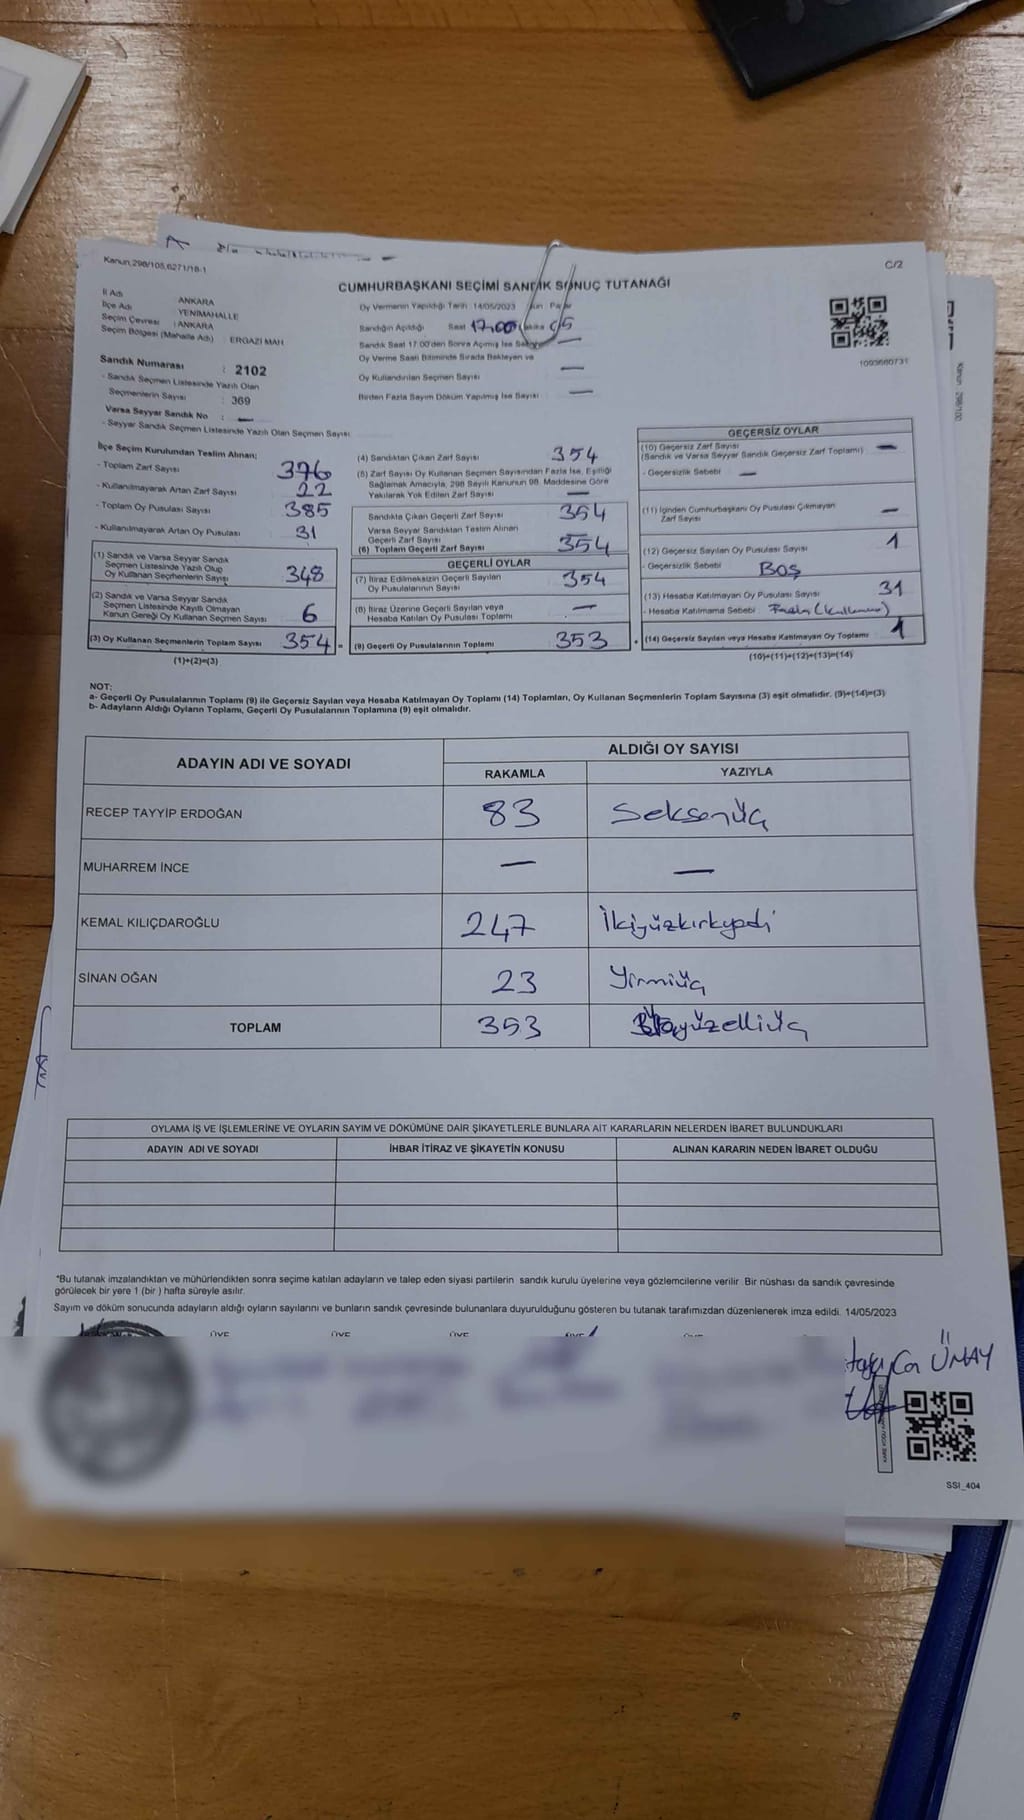 Kanun,298/105,6271/18-1
C/2
CUMHURBAŞKANI SEÇİMİ SANDIK SONUÇ TUTANAĞI
İl Adı ANKARA
İlçe Adı YENİMAHALLE
Seçim Çevresi : ANKARA
Seçim Bölgesi (Mahalle Adı) : ERGAZİ MAH
Sandık Numarası : 2102
- Sandık Seçmen Listesinde Yazılı Olan
Seçmenlerin Sayısı : 369
Varsa Seyyar Sandık No : —
- Seyyar Sandık Seçmen Listesinde Yazılı Olan Seçmen Sayısı
Oy Vermenin Yapıldığı Tarih : 14/05/2023 Gün : Pazar
Sandığın Açıldığı Saat 17:00 Dakika 05
Sandık Saat 17:00'den Sonra Açılmış İse Sebebi —
Oy Verme Saati Bitiminde Sırada Bekleyen ve
Oy Kullandırılan Seçmen Sayısı —
Birden Fazla Sayım Döküm Yapılmış İse Sayısı —
1093660731
İlçe Seçim Kurulundan Teslim Alınan;
- Toplam Zarf Sayısı 376
- Kullanılmayarak Artan Zarf Sayısı 22
- Toplam Oy Pusulası Sayısı 385
- Kullanılmayarak Artan Oy Pusulası 31
(1) Sandık ve Varsa Seyyar Sandık
Seçmen Listesinde Yazılı Olup
Oy Kullanan Seçmenlerin Sayısı 348
(2) Sandık ve Varsa Seyyar Sandık
Seçmen Listesinde Kayıtlı Olmayan
Kanun Gereği Oy Kullanan Seçmen Sayısı 6
(3) Oy Kullanan Seçmenlerin Toplam Sayısı 354 =
(1)+(2)=(3)
(4) Sandıktan Çıkan Zarf Sayısı 354
(5) Zarf Sayısı Oy Kullanan Seçmen Sayısından Fazla İse, Eşitliği
Sağlamak Amacıyla, 298 Sayılı Kanunun 98. Maddesine Göre
Yakılarak Yok Edilen Zarf Sayısı —
Sandıkta Çıkan Geçerli Zarf Sayısı 354
Varsa Seyyar Sandıktan Teslim Alınan
Geçerli Zarf Sayısı
(6) Toplam Geçerli Zarf Sayısı 354
GEÇERLİ OYLAR
(7) İtiraz Edilmeksizin Geçerli Sayılan
Oy Pusulalarının Sayısı 354
(8) İtiraz Üzerine Geçerli Sayılan veya
Hesaba Katılan Oy Pusulası Toplamı —
(9) Geçerli Oy Pusulalarının Toplamı 353 +
GEÇERSİZ OYLAR
(10) Geçersiz Zarf Sayısı —
(Sandık ve Varsa Seyyar Sandık Geçersiz Zarf Toplamı)
- Geçersizlik Sebebi —
(11) İçinden Cumhurbaşkanı Oy Pusulası Çıkmayan
Zarf Sayısı —
(12) Geçersiz Sayılan Oy Pusulası Sayısı 1
- Geçersizlik Sebebi BOŞ
(13) Hesaba Katılmayan Oy Pusulası Sayısı 31
- Hesaba Katılmama Sebebi
(14) Geçersiz Sayılan veya Hesaba Katılmayan Oy Toplamı 1
(10)+(11)+(12)+(13)=(14)
NOT:
a- Geçerli Oy Pusulalarının Toplamı (9) ile Geçersiz Sayılan veya Hesaba Katılmayan Oy Toplamı (14) Toplamları, Oy Kullanan Seçmenlerin Toplam Sayısına (3) eşit olmalıdır. (9)+(14)=(3)
b- Adayların Aldığı Oyların Toplamı, Geçerli Oy Pusulalarının Toplamına (9) eşit olmalıdır.
ADAYIN ADI VE SOYADI
ALDIĞI OY SAYISI
RAKAMLA YAZIYLA
RECEP TAYYİP ERDOĞAN 83 Seksenüç
MUHARREM İNCE — —
KEMAL KILIÇDAROĞLU 247 İkiyüzkırkyedi
SİNAN OĞAN 23 Yirmiüç
TOPLAM 353 Üçyüzelliüç
OYLAMA İŞ VE İŞLEMLERİNE VE OYLARIN SAYIM VE DÖKÜMÜNE DAİR ŞİKAYETLERLE BUNLARA AİT KARARLARIN NELERDEN İBARET BULUNDUKLARI
ADAYIN ADI VE SOYADI İHBAR İTİRAZ VE ŞİKAYETİN KONUSU ALINAN KARARIN NEDEN İBARET OLDUĞU
*Bu tutanak imzalandıktan ve mühürlendikten sonra seçime katılan adayların ve talep eden siyasi partilerin sandık kurulu üyelerine veya gözlemcilerine verilir. Bir nüshası da sandık çevresinde
görülecek bir yere 1 (bir ) hafta süreyle asılır.
Sayım ve döküm sonucunda adayların aldığı oyların sayılarını ve bunların sandık çevresinde bulunanlara duyurulduğunu gösteren bu tutanak tarafımızdan düzenlenerek imza edildi. 14/05/2023
ÜYE ÜYE ÜYE ÜYE
ÜNAY
SSI_404
Kanun, 298/100